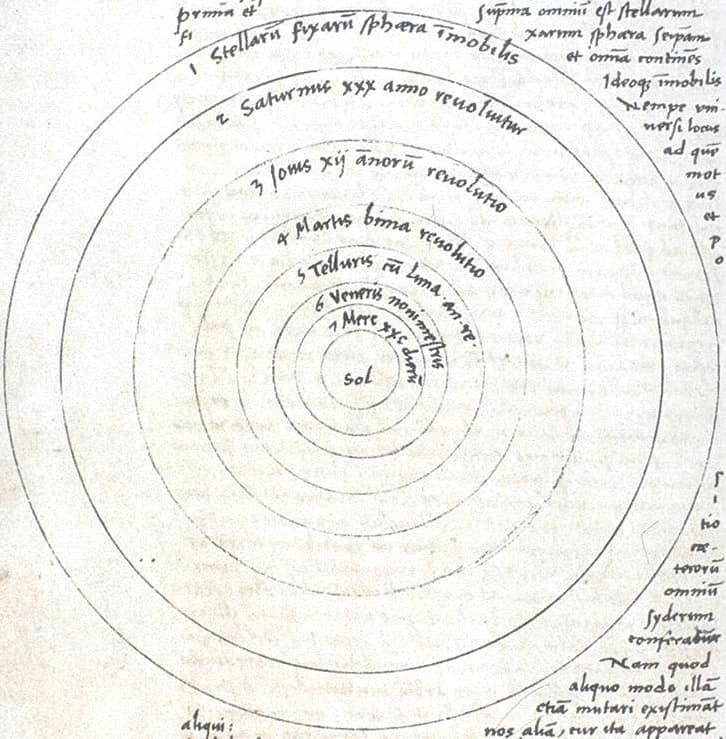 prima et
fi
sup̄ma omniū est stellarum
xarum sphæra seipam
et omīa continēs
Ideoqȝ īmobilis
Nempe vni
uersi locus
ad quē
mot
us
et
p
o
1 Stellarū fixarū sphæra īmobilis
2 Saturnus xxx anno reuoluitur
3 Jouis xij ānorū reuolutio
4 Martis bima reuolutio
5 Telluris cū luna an. re.
6 Veneris nonimestris
7 Merc xxc dierū
Sol
s
i
tio
cæ-
terorū
omniū
syderum
conferatur
Nam quod
aliquo modo illā
etiā mutari existimāt
aliqui:
nos aliā, cur ita appareat